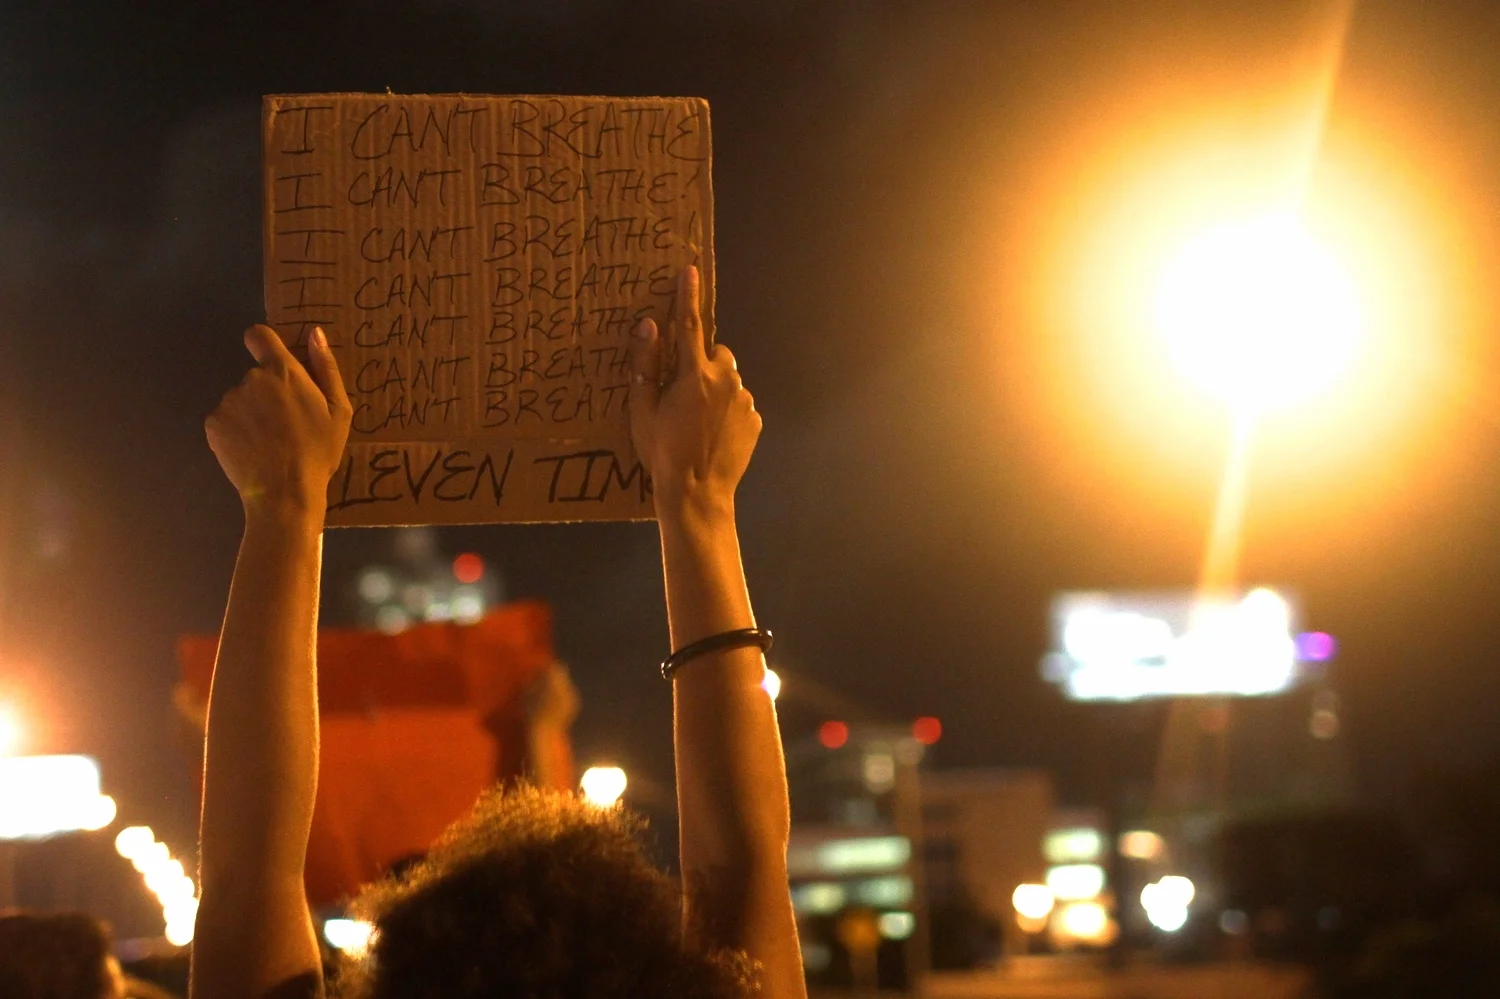 I CAN'T BREATHE
I CAN'T BREATHE!
I CAN'T BREATHE!
I CAN'T BREATHE
I CAN'T BREATHE
CAN'T BREATH
CAN'T BREAT
LEVEN TIM